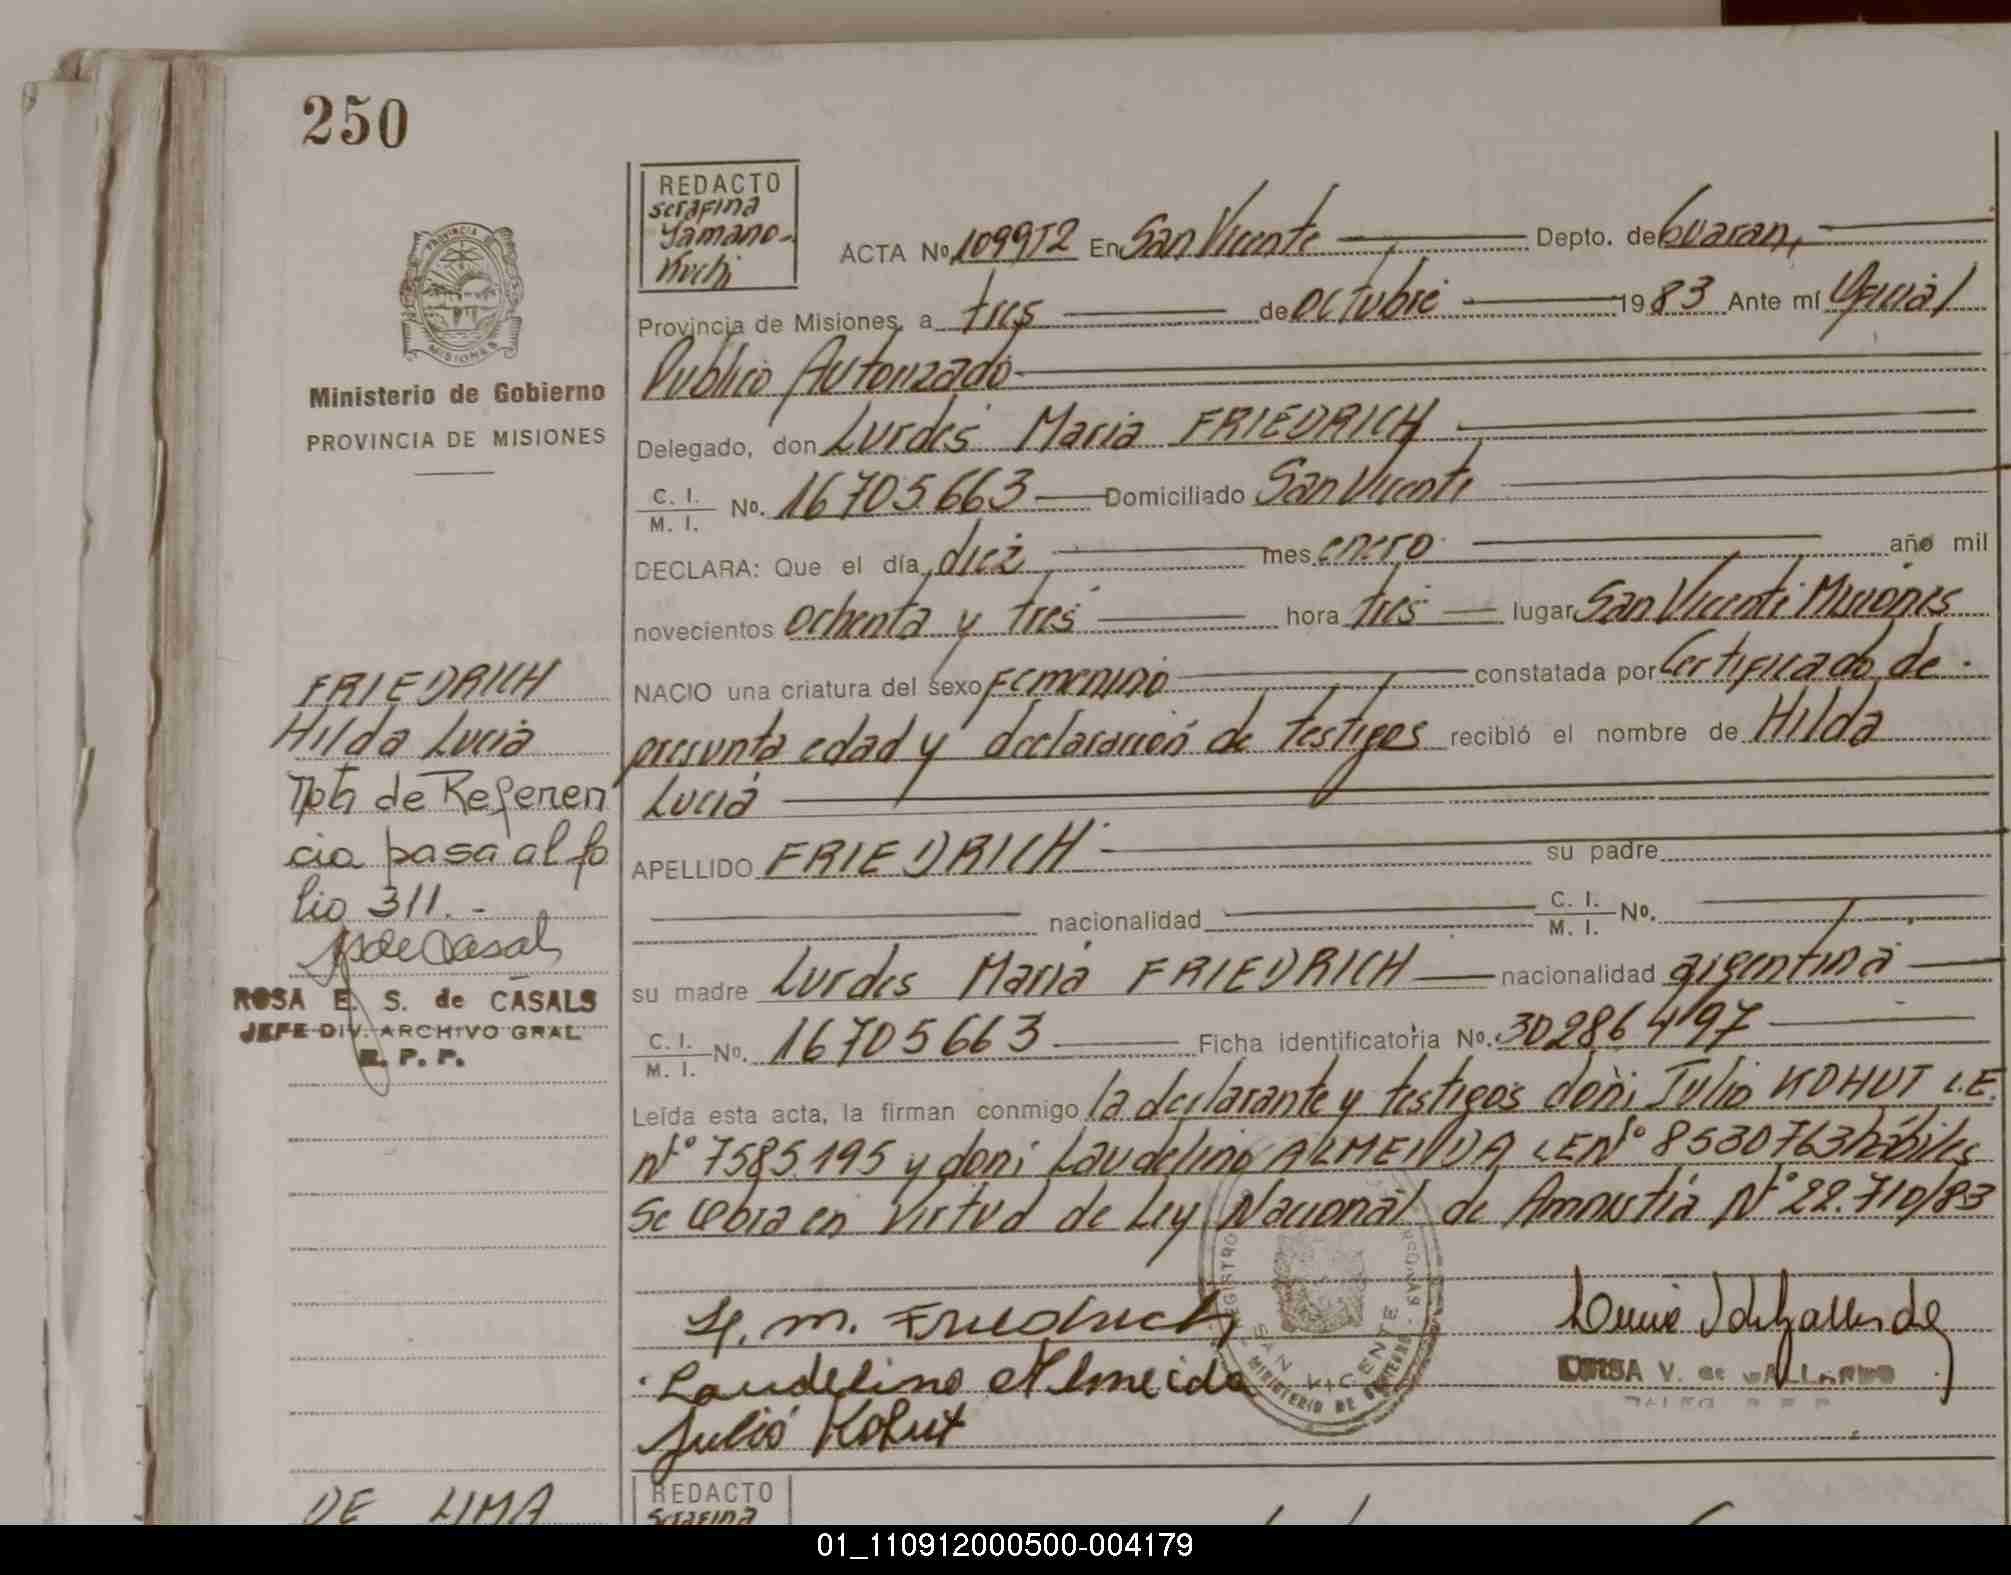 250
PROVINCIA
MISIONES
Ministerio de Gobierno
PROVINCIA DE MISIONES
FRIEDRICH
Hilda Lucia
Nota de Referen
cia pasa al fo
lio 311.-
ROSA E. S. de CASALS
JEFE DIV. ARCHIVO GRAL.
R. P. P.
DE LIMA
REDACTO
Serafina
Yamano-
Kuchi
ACTA No. 109952 En San Vicente Depto. de Guaraní
Provincia de Misiones, a tres de octubre 1983 Ante mí Oficial
Publico Autorizado
Delegado, don Lurdes Maria FRIEDRICH
C. I.
M. I. No. 16705663 Domiciliado San Vicente
DECLARA: Que el día diez mes enero año mil
novecientos ochenta y tres hora tres lugar San Vicente Misiones
NACIO una criatura del sexo femenino constatada por Certificado de
presunta edad y declaración de testigos recibió el nombre de Hilda
Lucia
APELLIDO FRIEDRICH su padre
nacionalidad C. I.
M. I. No.
su madre Lurdes Maria FRIEDRICH nacionalidad argentina
C. I.
M. I. No. 16705663 Ficha identificatoria No. 30286497
Leída esta acta, la firman conmigo la declarante y testigos don: Julio KOHUT L.E.
N° 7585.195 y don: Laudelino ALMEIDA LE N° 8530763 hábiles
Se labra en virtud de Ley Nacional de Amnistia N° 22.710/83
L. M. Friedrich
Laudelino Almeida
Julio Kohut
REGISTRO
SAN VICENTE
MINISTERIO DE GOBIERNO
LUISA V. de GALLARDO
REDACTO
Serafina
01_110912000500-004179